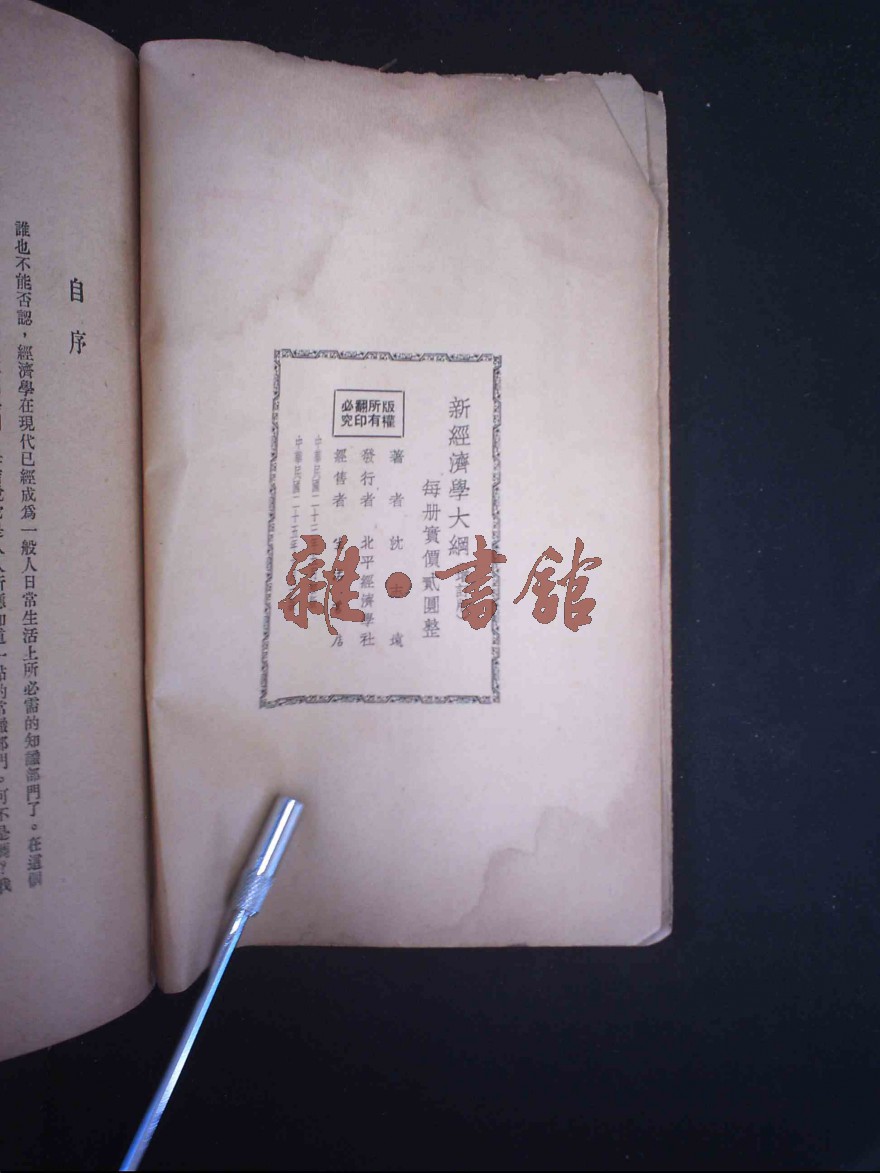 新經濟學大綱
每册實價貳圓整
版權所有
翻印必究
著者 沈志遠
發行者 北平經濟學社
經售者
中華民國二十二年
中華民國二十三年
雜·書館
自序
誰也不能否認，經濟學在現代已經成爲一般人日常生活上所必需的知識部門了。在這個